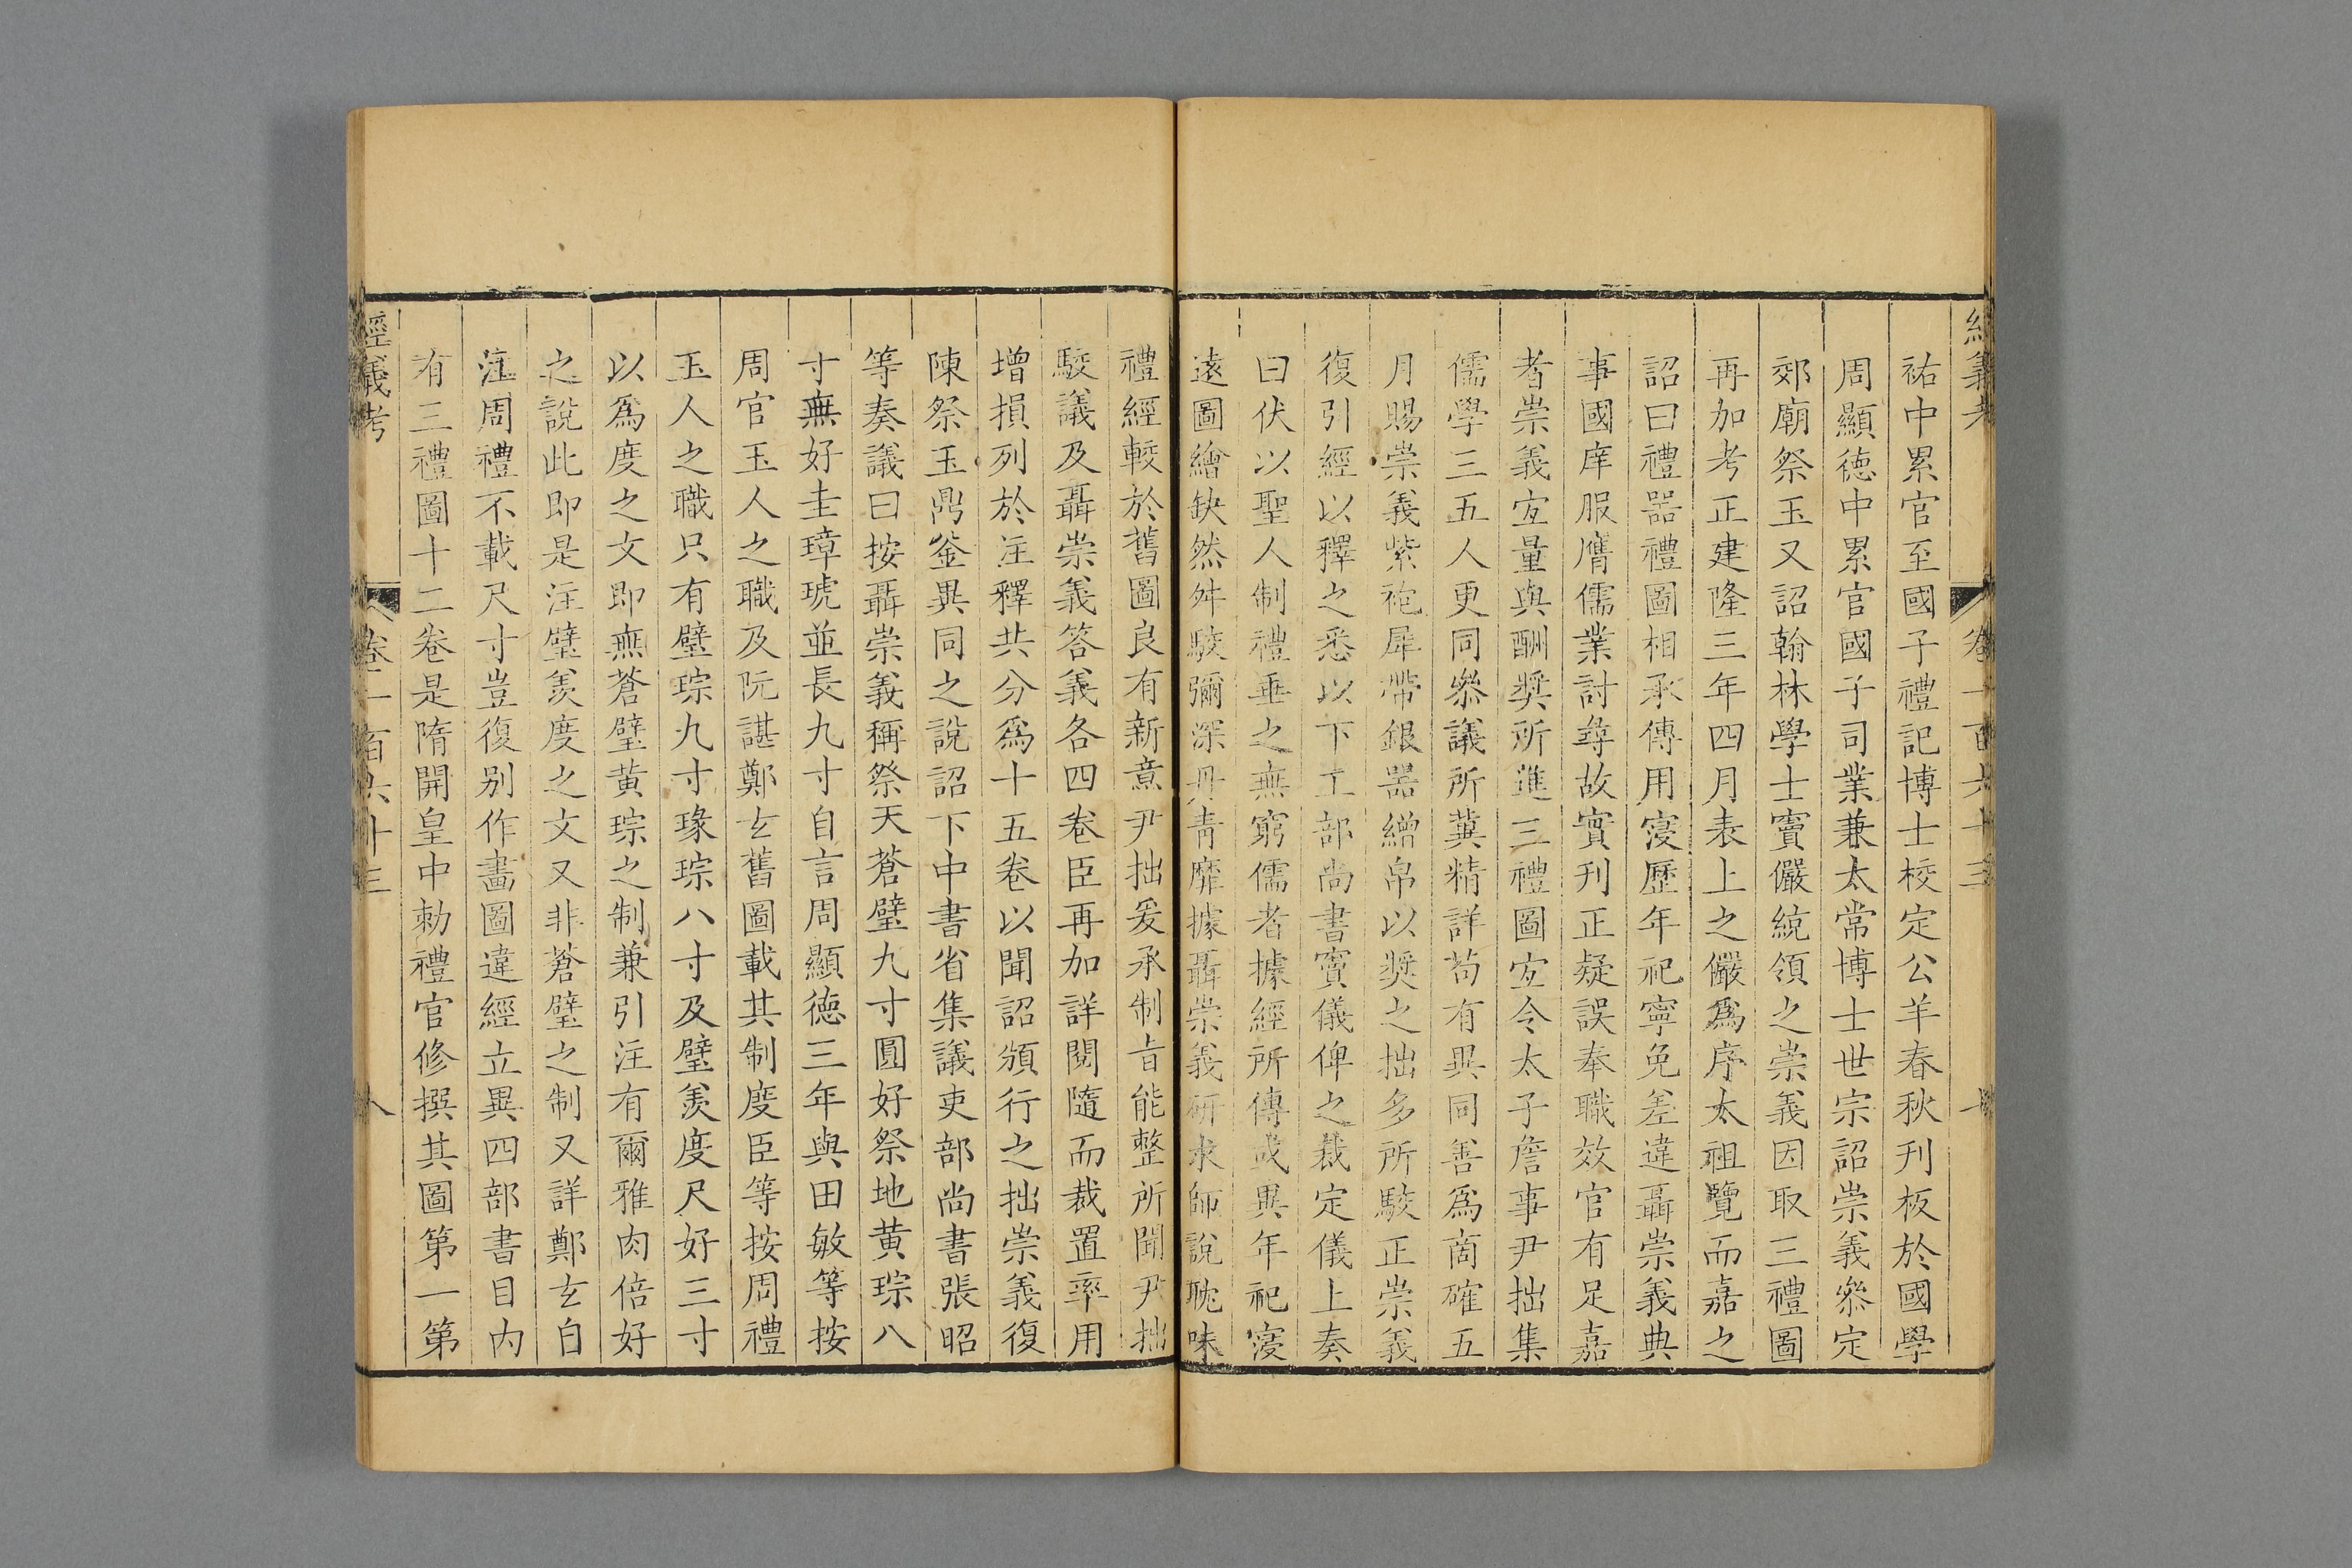 經義考 卷一百六十三
祐中累官至國子禮記博士校定公羊春秋刊板於國學
周顯徳中累官國子司業兼太常博士世宗詔崇義叅定
郊廟祭玉又詔翰林學士竇儼統領之崇義因取三禮圖
再加考正建隆三年四月表上之儼爲序太祖覽而嘉之
詔曰禮器禮圖相承傳用寖歷年祀寧免差違聶崇義典
事國庠服膺儒業討尋故實刊正疑誤奉職效官有足嘉
者崇義宜量與酬奬所進三禮圖宜令太子詹事尹拙集
儒學三五人更同叅議所冀精詳苟有異同善爲商確五
月賜崇義紫袍犀帶銀器繒帛以奬之拙多所駁正崇義
復引經以釋之悉以下工部尚書竇儀俾之裁定儀上奏
曰伏以聖人制禮垂之無窮儒者據經所傳或異年祀寖
遠圖繪缺然舛駮彌深丹青靡據聶崇義研求師說耽味
禮經較於舊圖良有新意尹拙爰承制旨能整所聞尹拙
駮議及聶崇義答義各四卷臣再加詳閱隨而裁置率用
增損列於注釋共分爲十五卷以聞詔頒行之拙崇義復
陳祭玉鼎釜異同之說詔下中書省集議吏部尚書張昭
等奏議曰按聶崇義稱祭天蒼璧九寸圓好祭地黄琮八
寸無好圭璋琥並長九寸自言周顯徳三年與田敏等按
周官玉人之職及阮諶鄭玄舊圖載其制度臣等按周禮
玉人之職只有璧琮九寸瑑琮八寸及璧羨度尺好三寸
以爲度之文即無蒼璧黄琮之制兼引注有爾雅肉倍好
之說此即是注璧羨度之文又非蒼璧之制又詳鄭玄自
注周禮不載尺寸豈復别作畫圖違經立異四部書目内
有三禮圖十二卷是隋開皇中勅禮官修撰其圖第一第
經義考 卷一百六十三 八